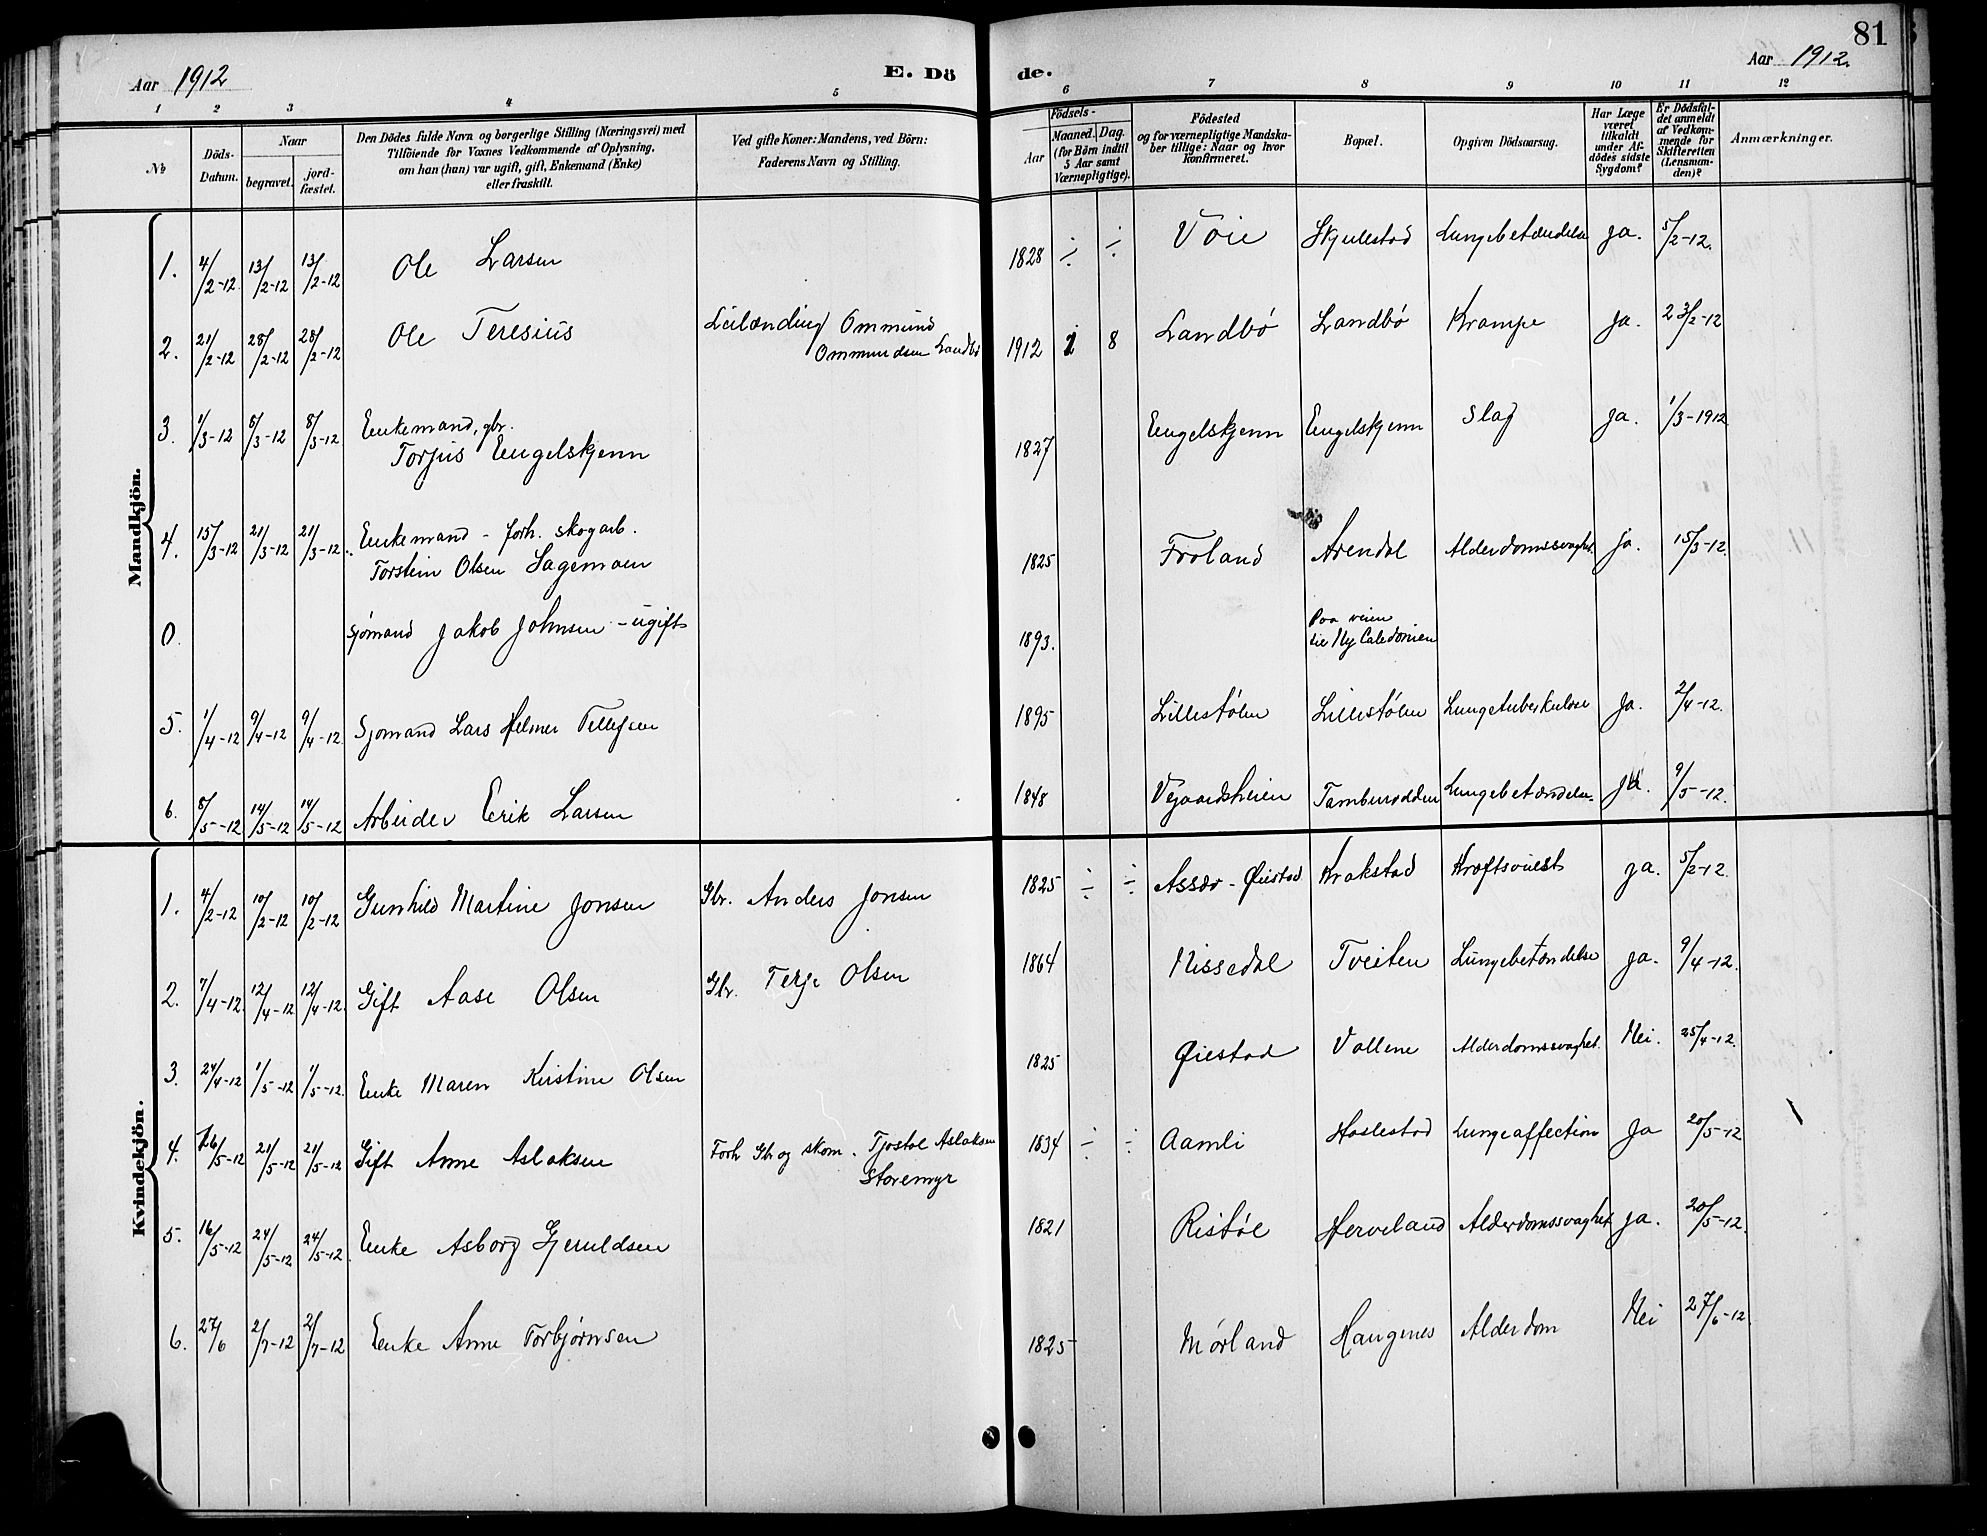 81
Aar 1912
E. Dö
de.
Aar 1912.
1 2 3 4 5 6 7 8 9 10 11 12
№
Döds-
Datum.
Naar
begravet.
jord-
fæstet.
Den Dödes fulde Navn og borgerlige Stilling (Næringsvei) med
Tilföiende for Voxnes Vedkommende af Oplysning,
om han (hun) var ugift, gift, Enkemand (Enke)
eller fraskilt.
Ved gifte Koner: Mandens, ved Börn:
Faderens Navn og Stilling.
Födsels-
Aar
Maaned. Dag.
(for Börn indtil
5 Aar samt
Værnepligtige).
Födested
og for værnepligtige Mandska-
ber tillige: Naar og hvor
konfirmeret.
Bopæl.
Opgiven Dödsaarsag.
Har Læge
været
tilkaldt
under Af-
dödes sidste
Sygdom?
Er Dödsfal-
det anmeldt
af Vedkom-
mende for
Skifteretten
(Lensman-
den)?
Anmærkninger.
Mandkjön.
1. 4/2-12 13/2-12 13/2-12 Ole Larsen 1828 ÷ ÷ Vøie Skjulestad Lungebetændelse ja. 5/2-12.
2. 21/2-12 28/2-12 28/2-12 Ole Teresius Leilænding Ommund
Ommundsen Landbø 1912 1 8 Landbø Landbø Krampe ja. 23/2-12
3. 1/3-12 8/3-12 8/3-12 Enkemand, gbr.
Torjus Engelskjenn 1827 Engelskjenn Engelskjenn Slag ja. 1/3-1912
4. 15/3-12 21/3-12 21/3-12. Enkemand - forh. skogarb.
Torstein Olsen Sagemoen 1825 Froland Arendal Alderdomssvaghet ja. 15/3-12.
0. Sjømand Jakob Johnsen - ugift 1893. Paa veien
til Ny Caledonien
5. 1/4-12 9/4-12 9/4-12. Sjømand Lars Helmer Tellefsen 1895 Lillestølen Lillestølen Lungetuberkulose Ja. 2/4-12.
6. 8/5-12 14/5-12 14/5-12 Arbeider Erik Larsen 1848 Vegaardsheien Tamburodden Lungebetændelse ja. 9/5-12.
Kvindekjön.
1. 4/2-12 10/2-12 10/2-12 Gunhild Martine Jonsen Gbr. Anders Jonsen 1825 ÷ ÷ Assæv - Øiestad Krakstad Kræftsvulst ja. 5/2-12.
2. 7/4-12. 12/4-12 12/4-12. Gift Aase Olsen Gbr. Terje Olsen 1864 Nissedal Tveiten Lungebetændelse ja. 9/4-12.
3. 24/4-12 1/5-12 1/5-12. Enke Maren Kirstine Olsen 1825 Øiestad Vallene Alderdomssvaghet. Nei. 25/4-12.
4. 16/5-12 21/5-12 21/5-12 Gift Anne Aslaksen Forh Gbr og skom. Tjostol Aslaksen
Storemyr 1834 ÷ ÷ Aamli Haslestad Lungeaffection Ja 20/5-12
5. 16/5-12 24/5-12 24/5-12. Enke Asborg Gjeruldsen 1821 Ristøl Herveland Alderdomssvaghet ja. 20/5-12.
6. 27/6 2/7-12 2/7-12 Enke Anne Torbjørnsen 1825 Mørland Haugenes Alderdom Nei 27/6-12.